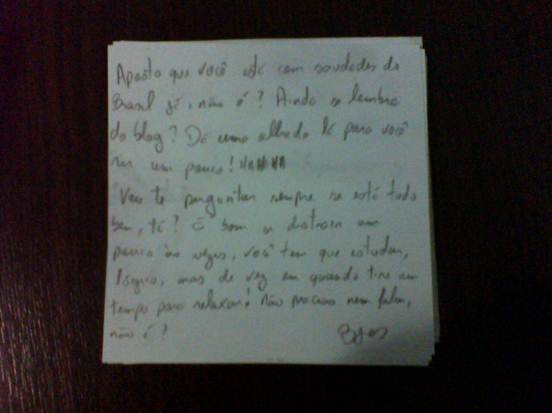 Aposto que você está com saudades do
Brasil já, não é? Ainda se lembra
do blog? Dá uma olhada lá para você
rir um pouco! HAHAHA
Vou te perguntar sempre se está tudo
bem, tá? É bom se distrair um
pouco às vezes, você tem que estudar,
lógico, mas de vez em quando tire um
tempo para relaxar! Não preciso nem falar,
não é?